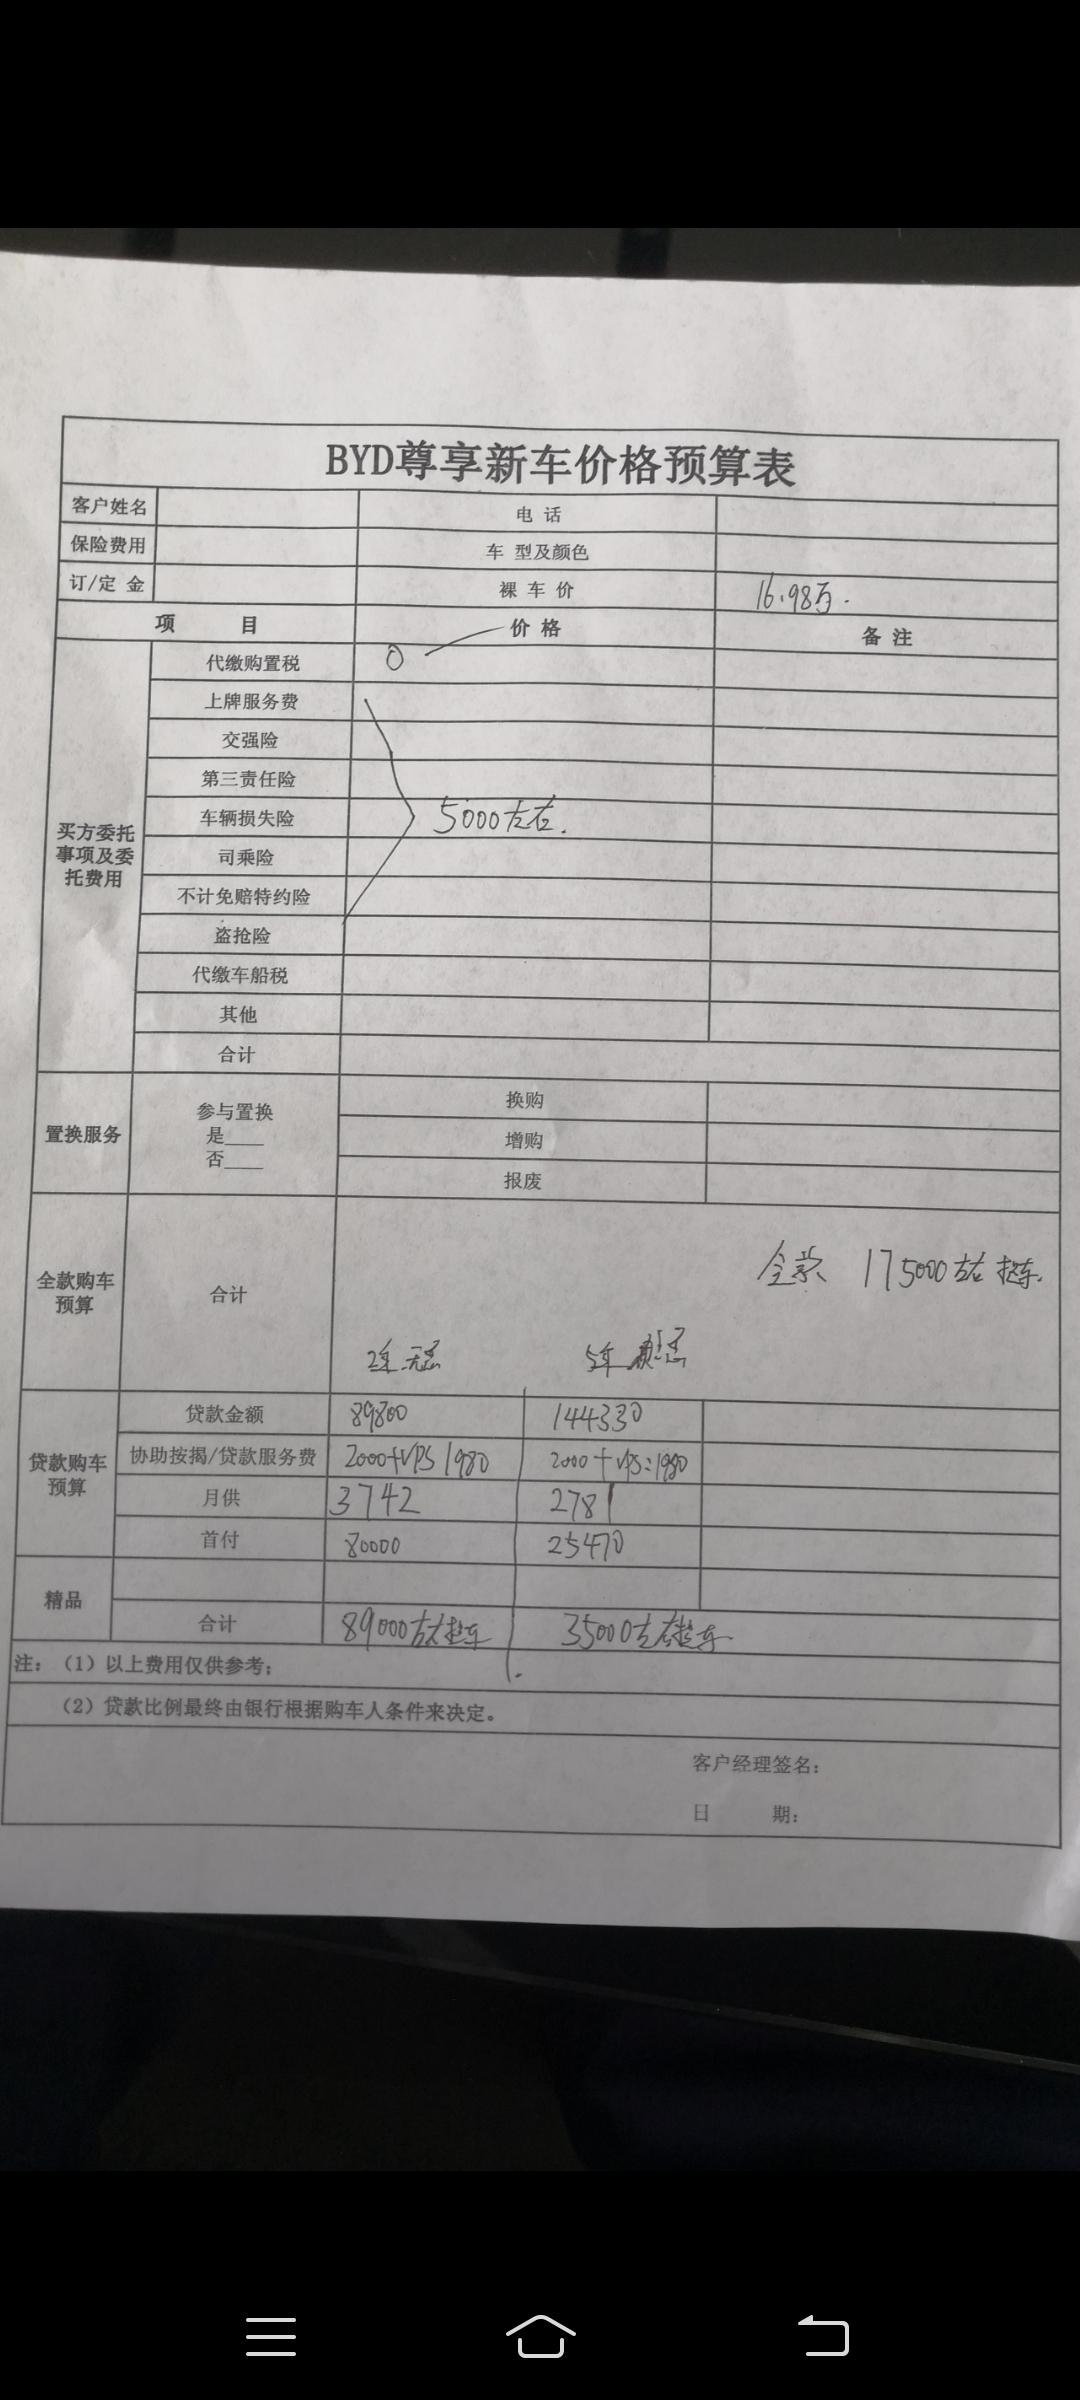 BYD尊享新车价格预算表
客户姓名 电 话
保险费用 车 型及颜色
订/定 金 裸 车 价 16.98万.
项 目 价 格 备 注
买方委托事项及委托费用
代缴购置税 0
上牌服务费
交强险
第三责任险
车辆损失险 5000左右.
司乘险
不计免赔特约险
盗抢险
代缴车船税
其他
合计
置换服务 参与置换 是____ 否____
换购
增购
报废
全款购车预算 合计
全款 175000左右 提车.
2年 无息 5年 息
贷款购车预算
贷款金额 89800 144330
协助按揭/贷款服务费 2000+VPS 1980 2000+VPS:1980
月供 3742 2781
首付 80000 25470
精品
合计 89000左右提车 35000左右提车
注:（1）以上费用仅供参考;
（2）贷款比例最终由银行根据购车人条件来决定。
客户经理签名:
日 期: